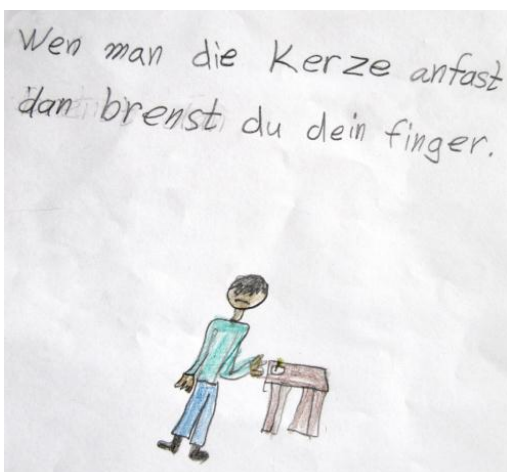 Wen man die Kerze anfast
dan brenst du dein finger.